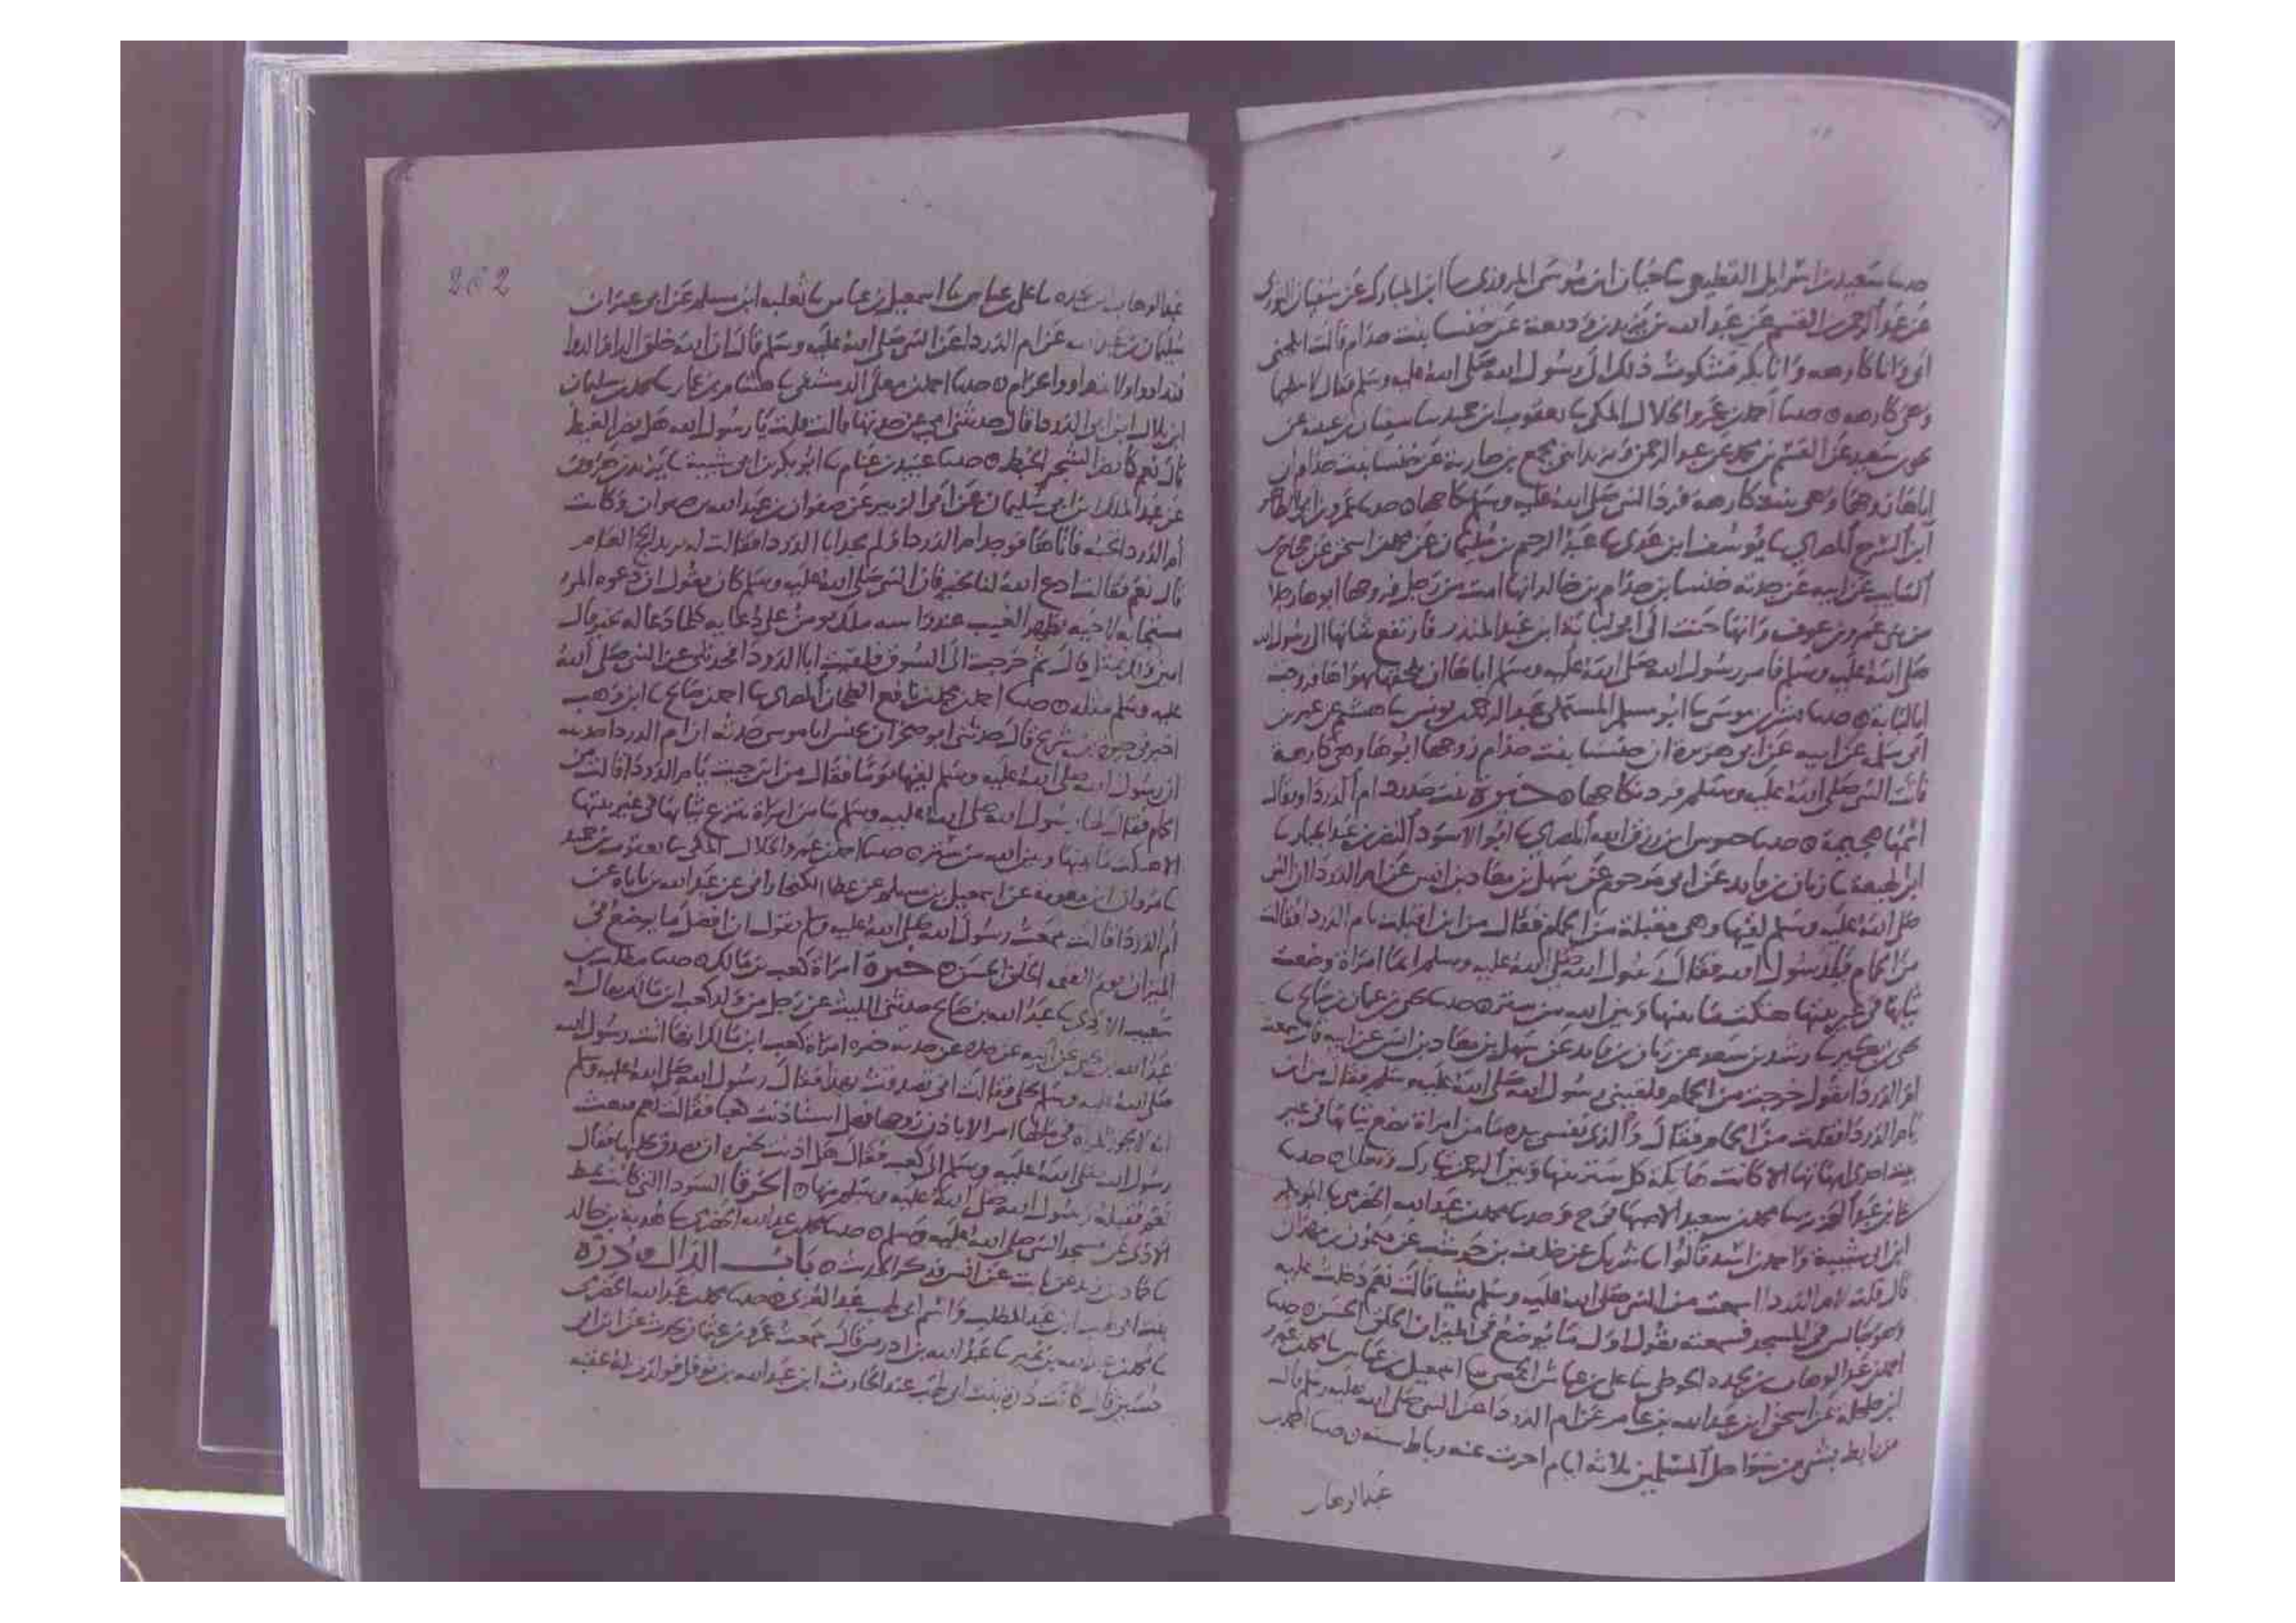 حدثنا سعيد بن اسرايل القطيعي ثنا حبان ابن موسى المروزي ثنا ابن المبارك عن سفيان الثوري
عن عبد الرحمن القسم عن عبد الله بن يزيد بن وديعة عن خنسا بنت خدام قالت انكحني
ابي وانا كارهه وانا بكر فشكوت ذلك الى رسول الله صلى الله عليه وسلم فقال لا
وهي كارهه حدثنا احمد بن عمرو الخلال المكي ثنا يعقوب ابن حميد ثنا سفيان بن عيينه عن
يحيى بن سعيد عن القسم بن محمد عن عبد الرحمن ابني مجمع بن جارية عن خنسا بنت خدام ان
اباها زوجها وهي كارهة فرد النبي صلى الله عليه وسلم نكاحها حدثنا عمرو بن ابي الطاهر
ابن السرح المصري ثنا يوسف ابن عدي ثنا عبد الرحيم بن سليمان عن محمد بن اسحق عن حجاج بن
السايب عن ابيه عن جدته خنسا بن خدام بن خالد انها ايمت من رجل فزوجها ابوها رجلا
من بني عمرو بن عوف وانها حنت الى ابي لبابة ابن عبد المنذر فارتفع شانها الى رسول الله
صلى الله عليه وسلم فامر رسول الله صلى الله عليه وسلم اباها ان يلحقها بهواها فزوجت
ابا لبابة حدثنا بن موسى ثنا ابو مسلم المستملي عبد الرحمن يونس ثنا هشيم عن عمر بن
ابي سلمى عن ابيه عن ابي هريرة ان خنسا بنت خدام زوجها ابوها وهي كارهة
فاتت النبي صلى الله عليه وسلم فرد نكاحها خيرة بنت حدرد ام الدردا ويقال
اسمها هجيمة حدثنا ابن رزق الله المصري ثنا ابو الاسود النضر بن عبد الجبار ثنا
ابن لهيعة ثنا زبان بن فايد عن ابي مرحوم عن سهل بن معاذ بن انس عن ام الدردا ان النبي
صلى الله عليه وسلم لقيها وهي مقبلة من الحمام فقال من اين اقبلت يام الدردا فقالت
من الحمام يا رسول الله فقال رسول الله صلى الله عليه وسلم ايما امراة وضعت
ثيابها في غير بيتها هتكت ما بينها وبين الله من ستره حدثنا يحيى بن عثمان بن صالح ثنا
يحيى بن بكير ثنا رشد بن سعد عن زبان بن فايد عن سهل بن معاذ بن انس عن ابيه قال سمعت
ام الدردا تقول خرجت من الحمام فلقيني رسول الله صلى الله عليه وسلم فقال من اين
يام الدردا فقلت من الحمام فقال والذي نفسي بيده ما من امراة تضع ثيابها في غير
بيت احدى امهاتها الا كانت هاتكة كل ستر بينها وبين الرحمن تبارك وتعالى حدثنا
علي بن عبد العزيز ثنا محمد بن سعيد الاصبهاني ح وحدثنا محمد بن عبد الله الحضرمي ثنا ابو بكر
ابن ابي شيبة واحمد بن اسد قالوا ثنا شريك عن خلف بن حوشب عن ميمون بن مهران
قال قلت لام الدردا اسمعت من النبي صلى الله عليه وسلم شيا قالت نعم دخلت عليه
وهو جالس في المسجد فسمعته يقول اول ما يوضع في الميزان الخلق الحسن حدثنا
احمد بن عبد الوهاب بن نجده الحوطي ثنا علي بن عياش الحمصي ثنا اسمعيل بن عياش ثنا محمد بن عمرو
ابن حلحلة عن اسحق ابن عبد الله بن عامر عن ام الدردا عن النبي صلى الله عليه وسلم قال
من رابط بشي من سواحل المسلمين ثلاثه ايام اجزت عنه رباط سنه حدثنا احمد بن
عبد الوهاب
262
عبد الوهاب بن نجده ثنا علي عياش ثنا اسمعيل بن عياش ثنا ثعلبه ابن مسلم عن ابي عمران
سليمان بن عبد الله عن ام الدردا عن النبي صلى الله عليه وسلم قال ان الله خلق الدا والدوا
فتداووا ولا تتداووا بحرام حدثنا احمد بن معلى الدمشقي ثنا هشام بن عمار ثنا محمد بن سليمان
ابن بلال ابن ابي الدردا قال حدثتني امي عن جدتها قالت قلت يا رسول الله هل يضر الغبط
قال نعم كما يضر الشجر الخبط حدثنا عبيد بن غنام ثنا ابو بكر بن ابي شيبة ثنا يزيد بن هرون
عن عبد الملك بن ابي سليمان عن ابي الزبير عن صفوان بن عبد الله بن صفوان وكانت
ام الدردا تحته فاتاها فوجد ام الدردا ولم يجد ابا الدردا فقالت له تريد الحج العام
قال نعم فقالت ادع الله لنا بخير فان النبي صلى الله عليه وسلم كان يقول ان دعوه المرء
مستجابه لاخيه بظهر الغيب عند راسه ملك يومن على دعايه كلما دعا له بخير قال
امين ولك بمثل قال ثم خرجت الى السوق فلقيت ابا الدردا فحدثني عن النبي صلى الله
عليه وسلم مثله حدثنا احمد بن محمد بن نافع الطحان المصري ثنا احمد صالح ثنا ابن وهب
اخبرني حيوة بن شريح قال حدثني ابو صخر ان يحنس ابا موسى حدثه ان ام الدردا حدثته
ان رسول الله صلى الله عليه وسلم لقيها يوما فقال من اين جيت يام الدردا قالت من
الحمام فقال لها رسول الله صلى الله عليه وسلم ما من امراة تنزع ثيابها في غير بيتها
الا هتكت ما بينها وبين الله من ستره حدثنا احمد بن عمرو الخلال المكي ثنا يعقوب بن حميد
ثنا مروان ابن معويه عن اسمعيل بن مسلم عن عطا الكيخاراني عن عبد الله بن باباه عن
ام الدردا قالت سمعت رسول الله صلى الله عليه وسلم يقول ان افضل ما يوضع في
الميزان يوم القيمه الخلق الحسن خيرة امراة كعب بن مالك حدثنا مطلب بن
شعيب الازدي ثنا عبد الله بن صالح حدثني الليث عن رجل من ولد كعب ابن مالك يقال له
عبد الله بن يحيى عن ابيه عن جده عن جدته خيره امراة كعب ابن مالك انها اتت رسول الله
صلى الله عليه وسلم بحلي فقالت اني تصدقت بهذا فقال رسول الله صلى الله عليه وسلم
انه لا يجوز للمراة في مالها امر الا باذن زوجها فهل استاذنت كعبا فقالت نعم فبعث
رسول الله صلى الله عليه وسلم الى كعب فقال هل اذنت لخيره ان تصدق بحليها فقال
نعم فقبله رسول الله صلى الله عليه وسلم منها الخرقا السودا التي كانت تميط
الاذى عن مسجد النبي صلى الله عليه وسلم حدثنا محمد بن عبد الله الحضرمي ثنا هدبة بن خالد
ثنا حماد بن زيد عن ثابت عن انس فذكر الحديث باب الدال درة
بنت ابي لهب ابن عبد المطلب واسم ابي لهب عبد العزى حدثنا محمد بن عبد الله الحضرمي
ثنا محمد بن عبد الله بن نمير ثنا عبد الله بن ادريس قال سمعت عمرو بن عثمان يحدث عن ابن ابي
حسين قال كانت دره بنت ابي لهب عند الحارث ابن عبد الله بن نوفل فولدت له عقبه